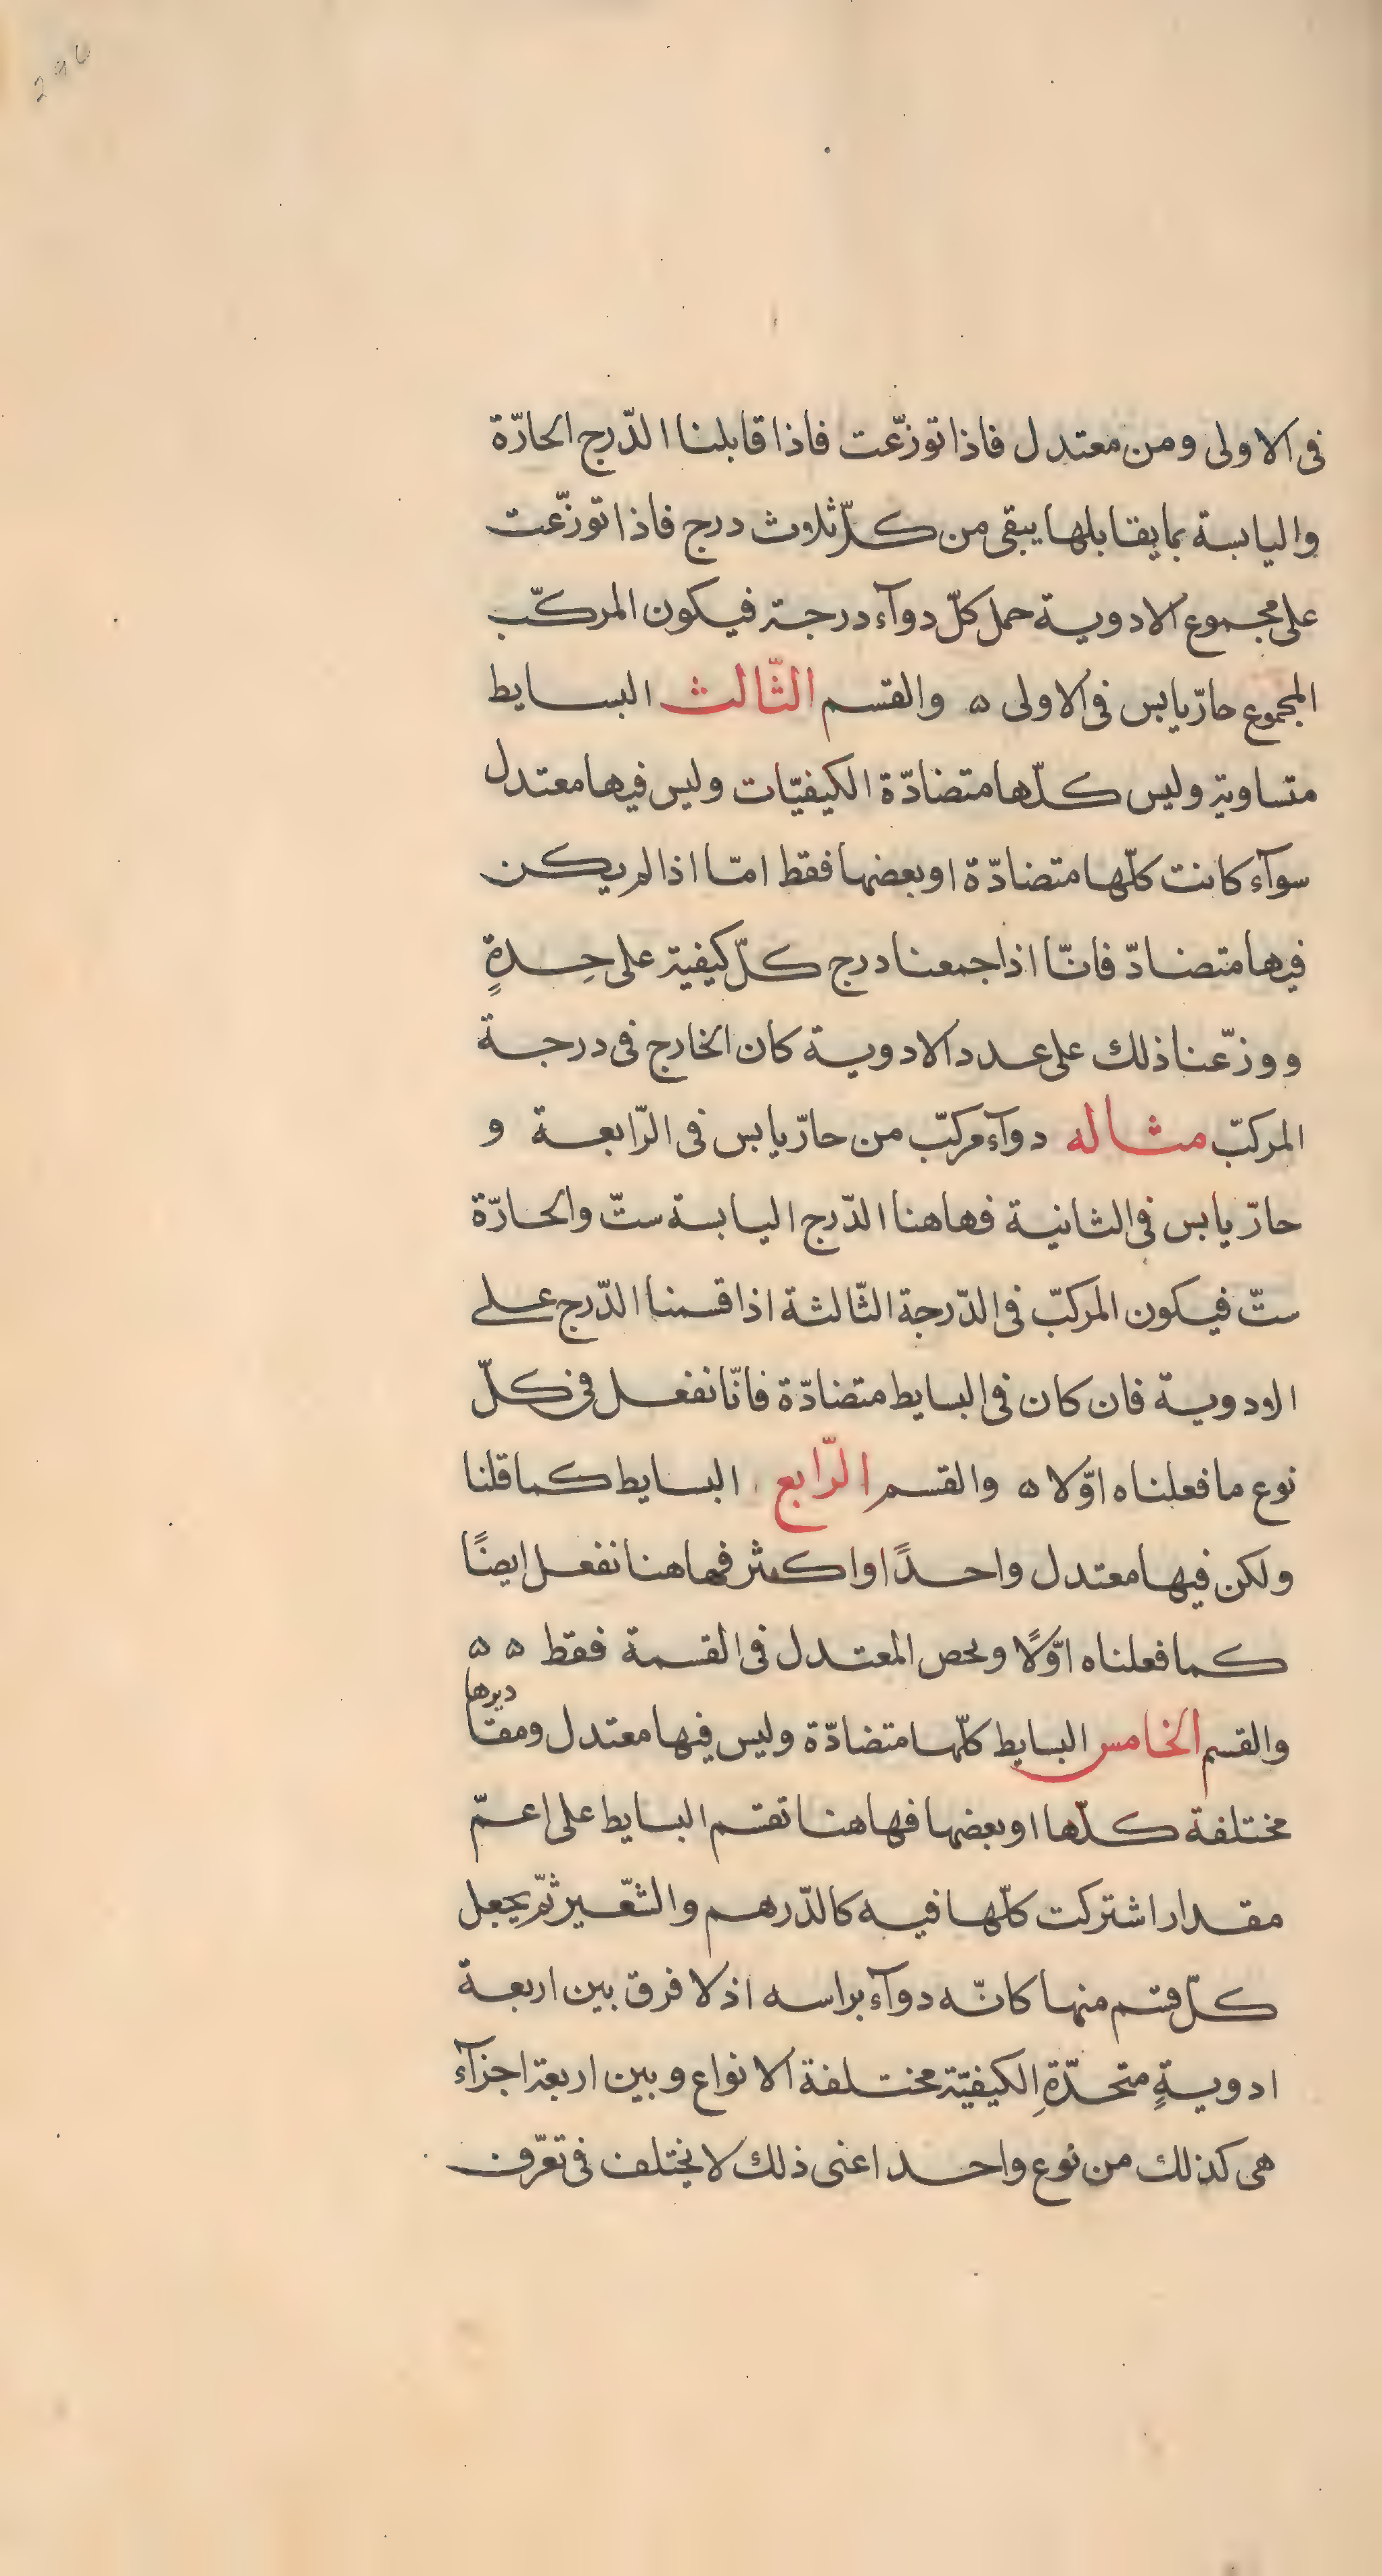 296
فى الاولى ومن معتدل فاذا توزّعت فاذا قابلنا الدّرج الحارّة
واليابسة بما يقابلها يبقى من كلّ ثلاث درج فاذا توزّعت
على مجموع الادوية حمل كلّ دوآء درجة فيكون المركّب
المجموع حارّ يابس فى الاولى ۵ والقسم الثّالث البسايط
متساوية وليس كلّها متضادّة الكيفيّات وليس فيها معتدل
سوآء كانت كلّها متضادّة او بعضها فقط امّا اذا لم يكن
فيها متضادّ فانّا اذا جمعنا درج كلّ كيفية على حِدةٍ
ووزّعنا ذلك على عدد الادوية كان الخارج فى درجة
المركّب مثاله دوآء مركّب من حارّ يابس فى الرّابعة و
حارّ يابس فى الثانية فهاهنا الدّرج اليابسة ستّ والحارّة
ستّ فيكون المركّب فى الدّرجة الثّالثة اذا قسمنا الدّرج على
الادوية فان كان فى البسايط متضادّة فانّا نفعل فى كلّ
نوع ما فعلناه اوّلا ۵ والقسم الرّابع البسايط كما قلنا
ولكن فيها معتدل واحدًا او اكثر فهاهنا نفعل ايضًا
كما فعلناه اوّلًا ويحص المعتدل فى القسمة فقط ۵ ۵
والقسم الخامس البسايط كلّها متضادّة وليس فيها معتدل ومقاديرها
مختلفة كلّها او بعضها فهاهنا تقسم البسايط على اعمّ
مقدار اشتركت كلّها فيه كالدّرهم والشّعير ثمّ يجعل
كلّ قسم منها كانّه دوآء براسه اذ لا فرق بين اربعة
ادويةٍ متحدّةِ الكيفيّة مختلفة الانواع وبين اربعة اجزآء
هى كذلك من نوع واحد اعنى ذلك لا يختلف فى تعرّف